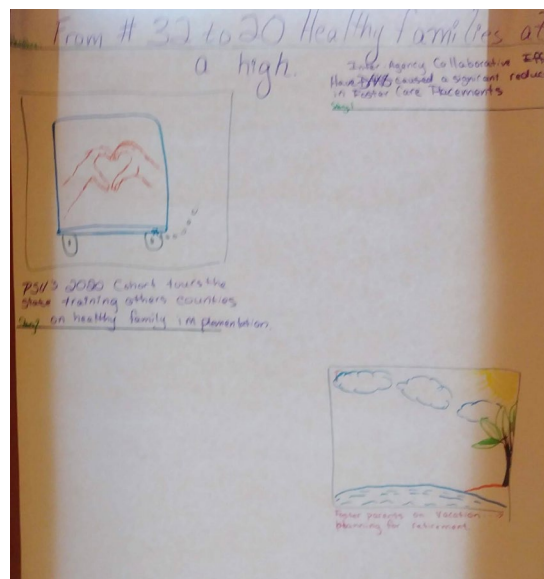 From # 32 to 20 Healthy families at
a high.
Inter Agency Collaborative Eff
Have caused a signicant reduc
in Foster Care Placements
Story!
PSU's 2020 Cohort tours the
state training others counties
Story! on healthy family implementation
Foster parents on vacation
planning for retirement